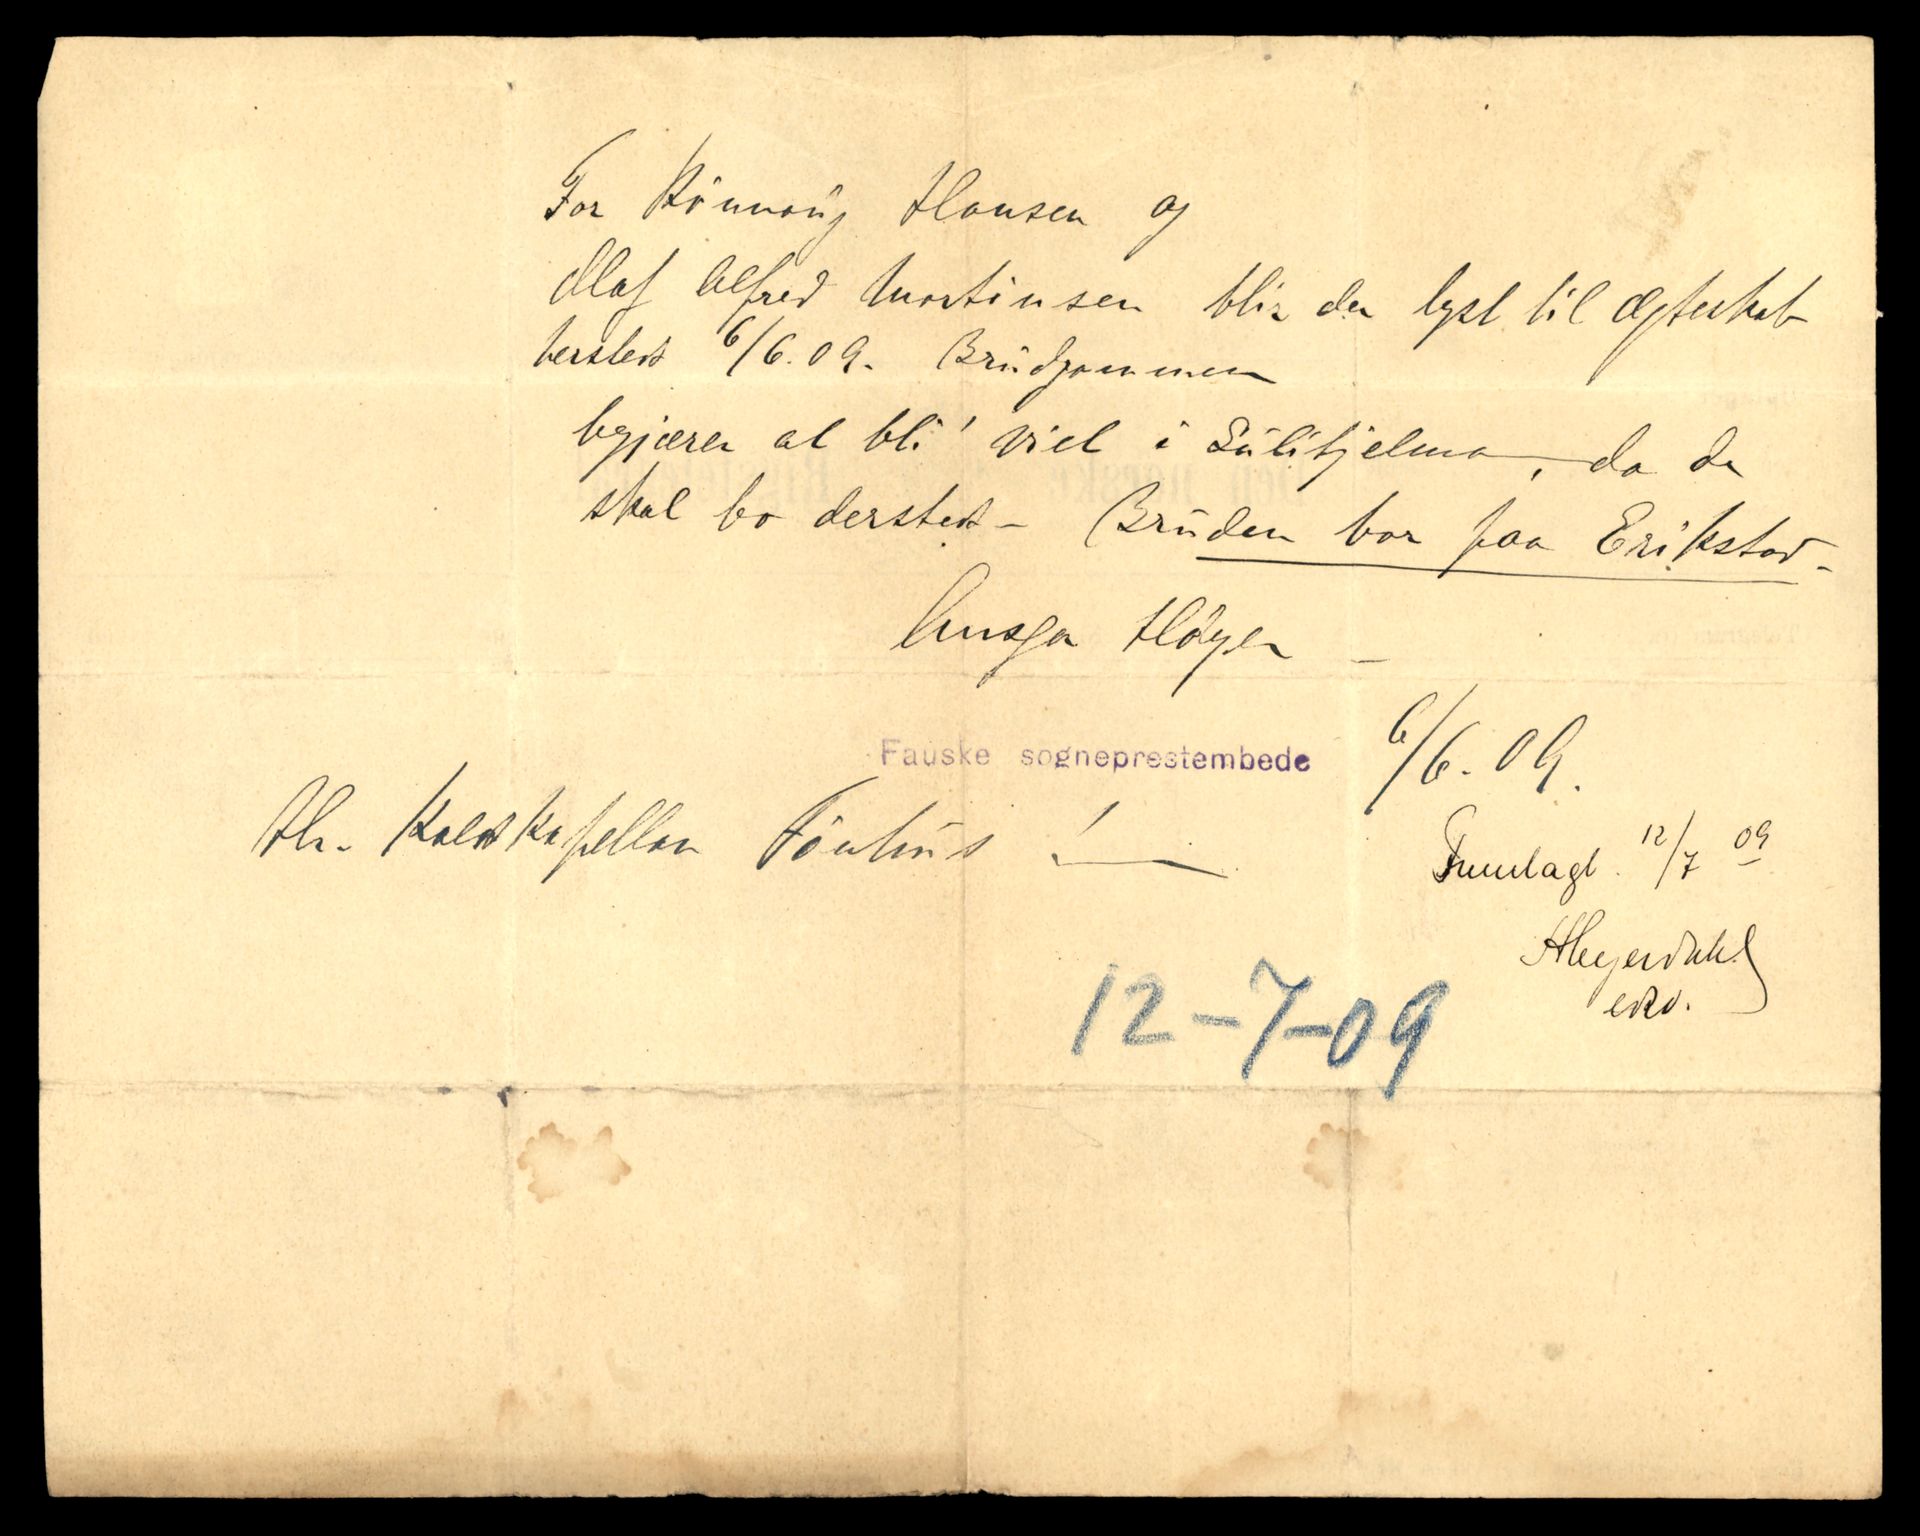 For Rönnaug Hansen og
Olaf Alfred Martinsen blir der lyst til Ægteskab
hersteds 6/6.09. Brudgommen
begjærer at bli' viet i Sulitjelma, da de
skal bo dersteds - Bruden bor paa Erikstad -
Ansga Höyer -
Fauske sogneprestembede
6/6.09.
Hr. Kaldskapellan Fönhus !
Fremlagt. 12/7 09
AHeyerdahl
12-7-09